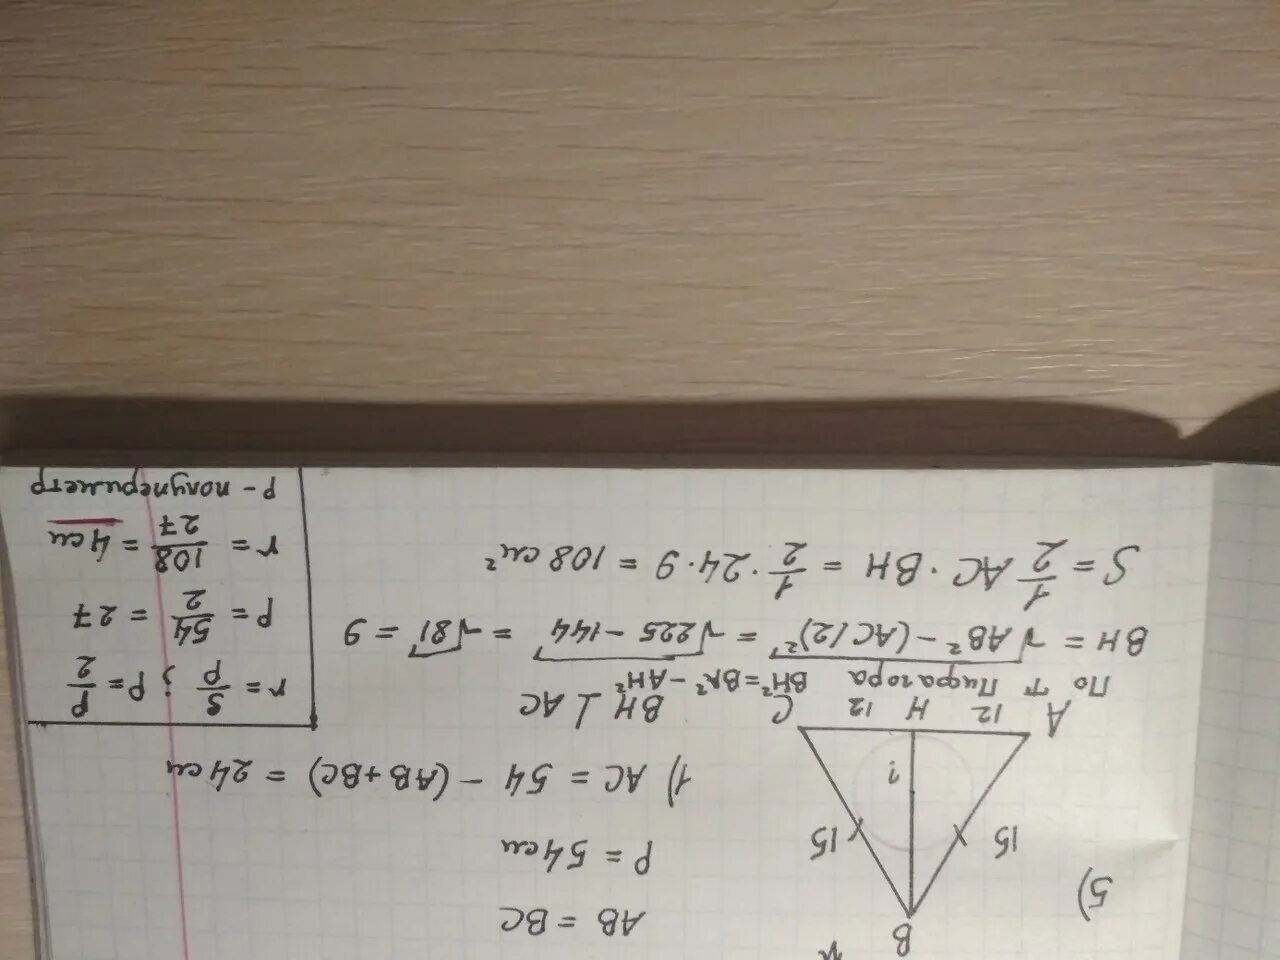 5)
B
15 15
?
A 12 H 12 C
AB = BC
P = 54 см
1) AC = 54 - (AB + BC) = 24 см
BH ⊥ AC
По т Пифагора BH² = BA² - AH²
BH = √AB² - (AC/2)² = √225 - 144 = √81 = 9
S = 1/2 AC · BH = 1/2 · 24 · 9 = 108 см²
r = S/p ; p = P/2
p = 54/2 = 27
r = 108/27 = 4 см
p - полупериметр